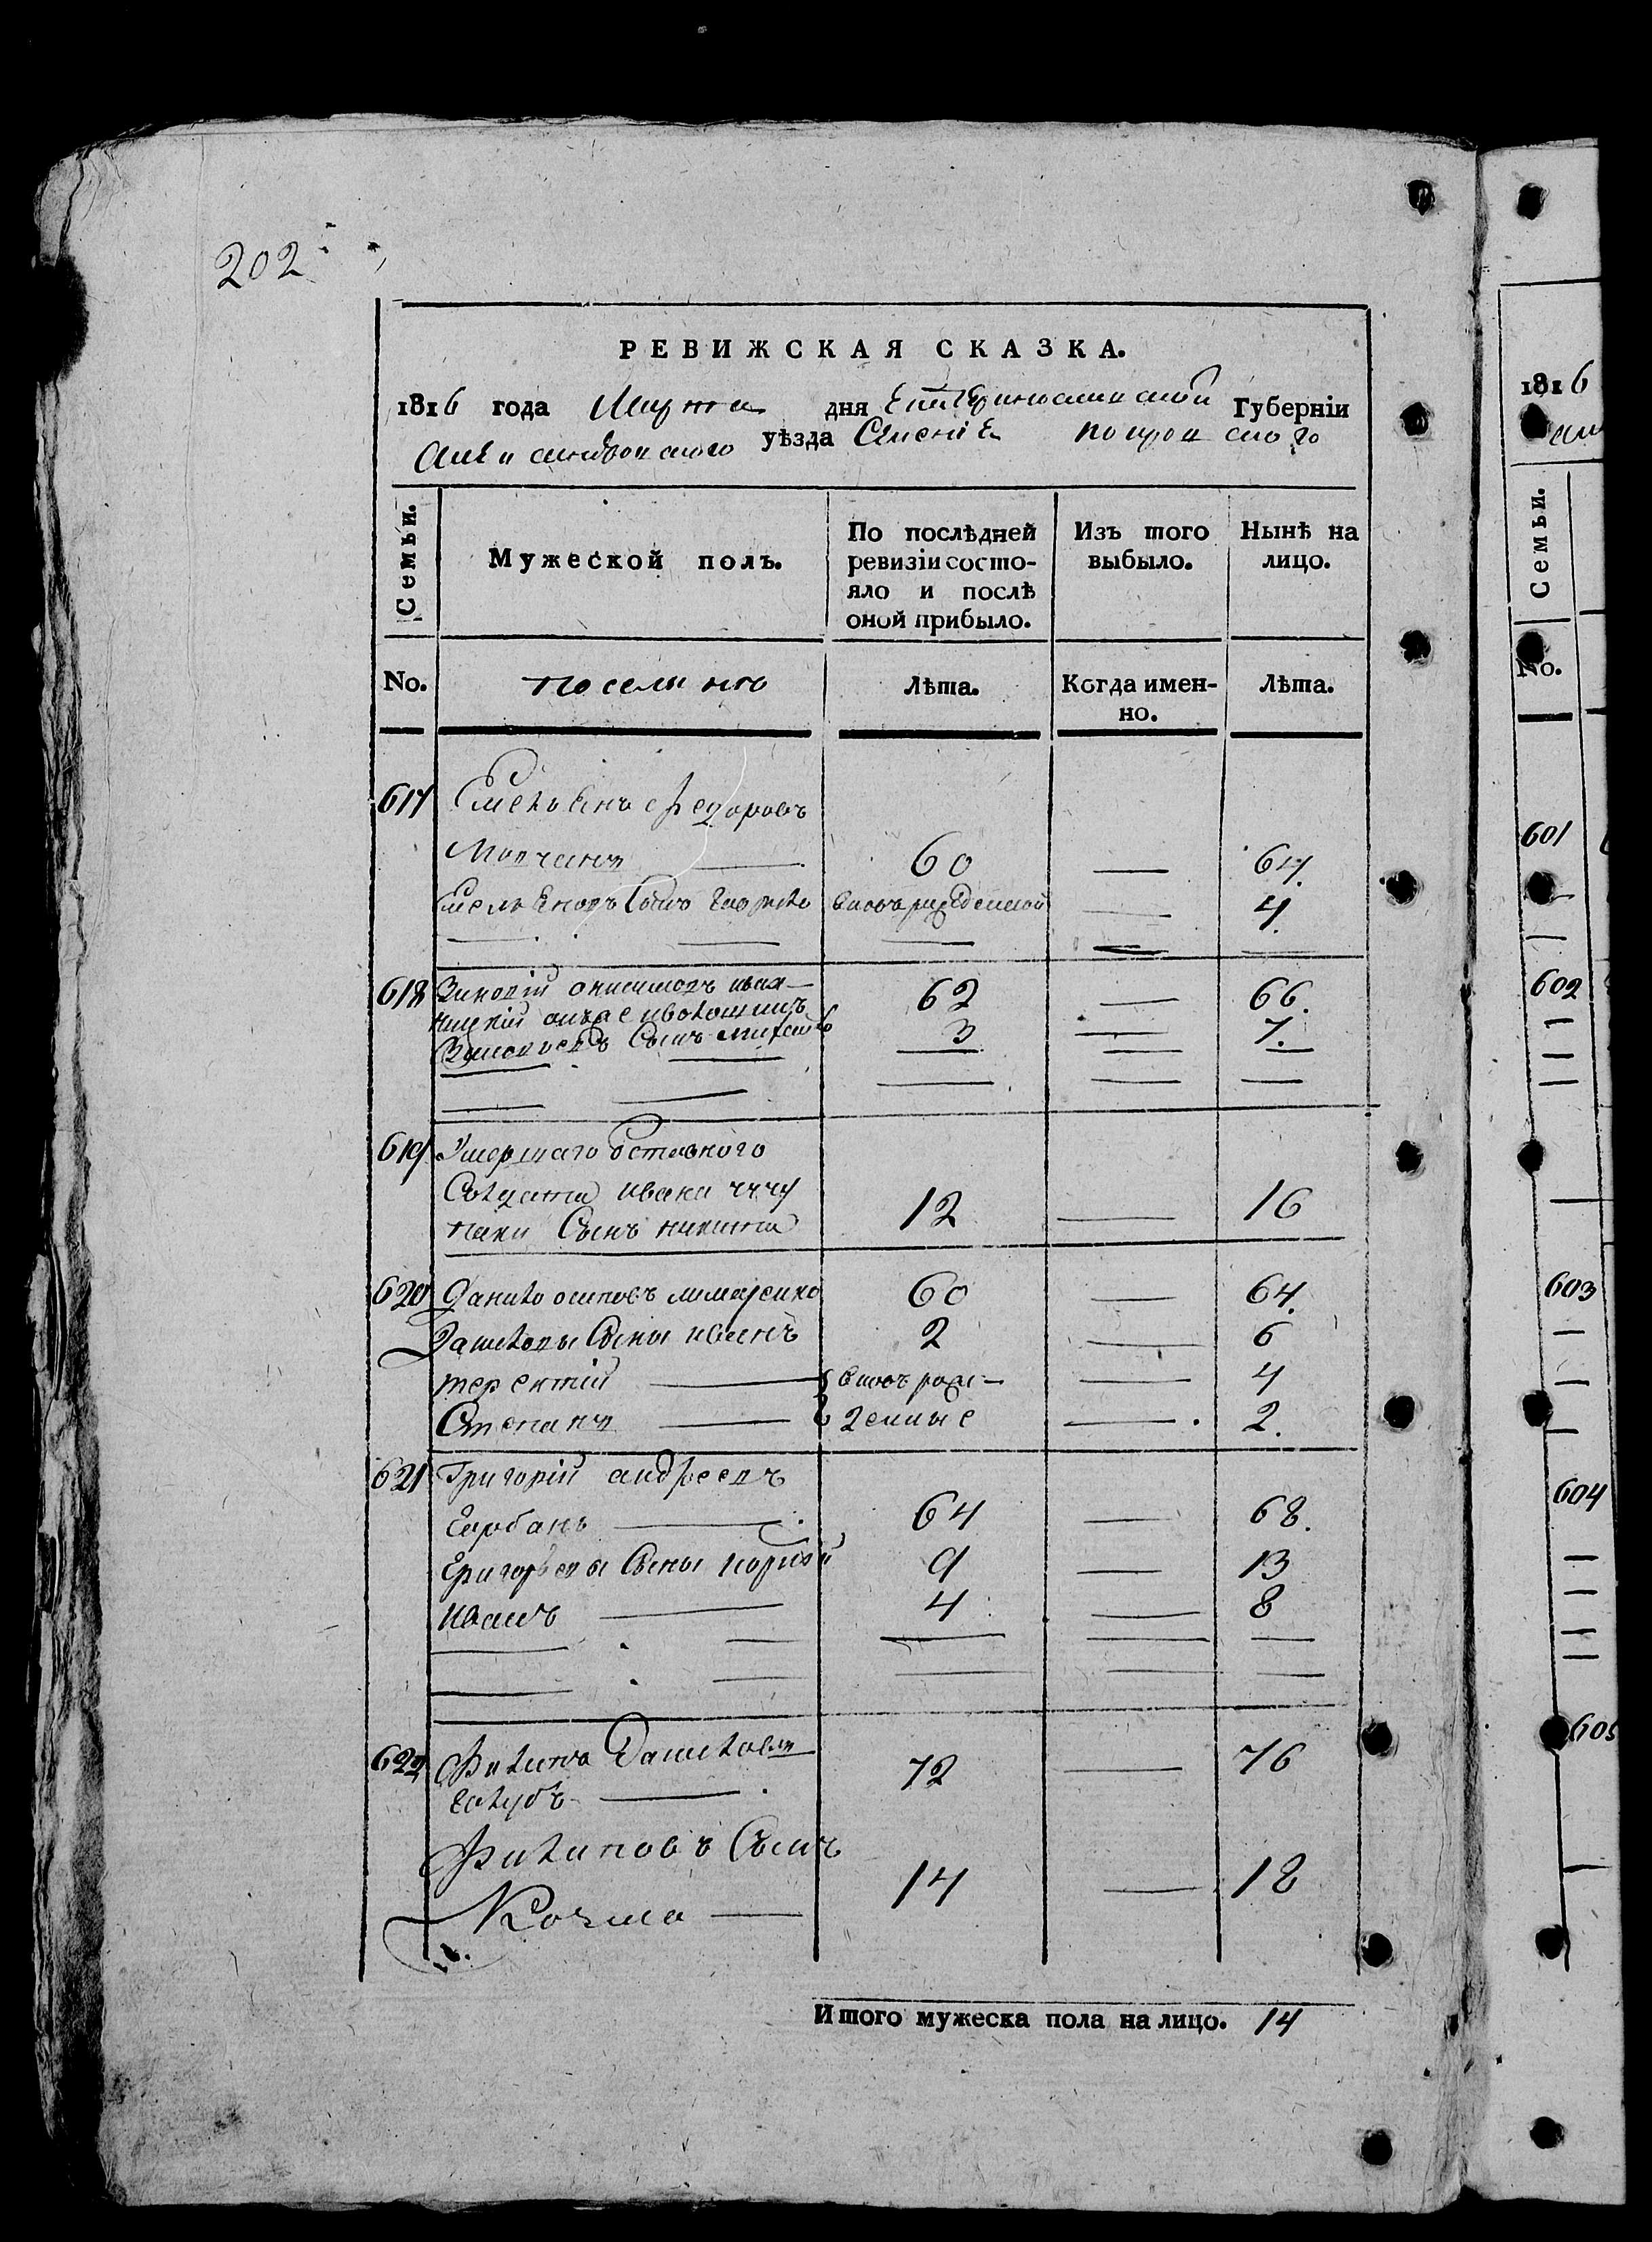 202
РЕВИЖСКАЯ СКАЗКА.
1816 года Марта дня Екатеринославской Губерніи
Александровского уѣзда Селенія Покровского
Семьи.
Мужеской полъ.
По послѣдней ревизіи состояло и послѣ оной прибыло.
Изъ того выбыло.
Нынѣ на лицо.
No.
поселянъ
Лѣта.
Когда именно.
Лѣта.
617 Емельянъ Федоровъ
Молчанъ — 60 — 64.
Емельяновъ Сынъ вновь рожденной — 4.
618 Зиновій Онисимовъ 62 — 66.
Зиновьевъ Сынъ 3 — 7.
619 Умершаго Отставного
Солдата Ивана
Сынъ Никита 12 — 16
620 Данило осиповъ 60 — 64.
Даниловы Сыны Иванъ 2 — 6
терентій — вновь рож- — 4
Степанъ — денные — 2.
621 Григорій андреевъ
Горбань — 64 — 68.
Григорьевы Сыны 9 — 13
Иванъ — 4 — 8
622 Филипъ Даниловъ 72 — 76
Голубъ —
Филиповъ Сынъ
Козма — 14 — 18
Итого мужеска пола на лицо. 14
1816
Семьи.
No.
601
602
603
604
605